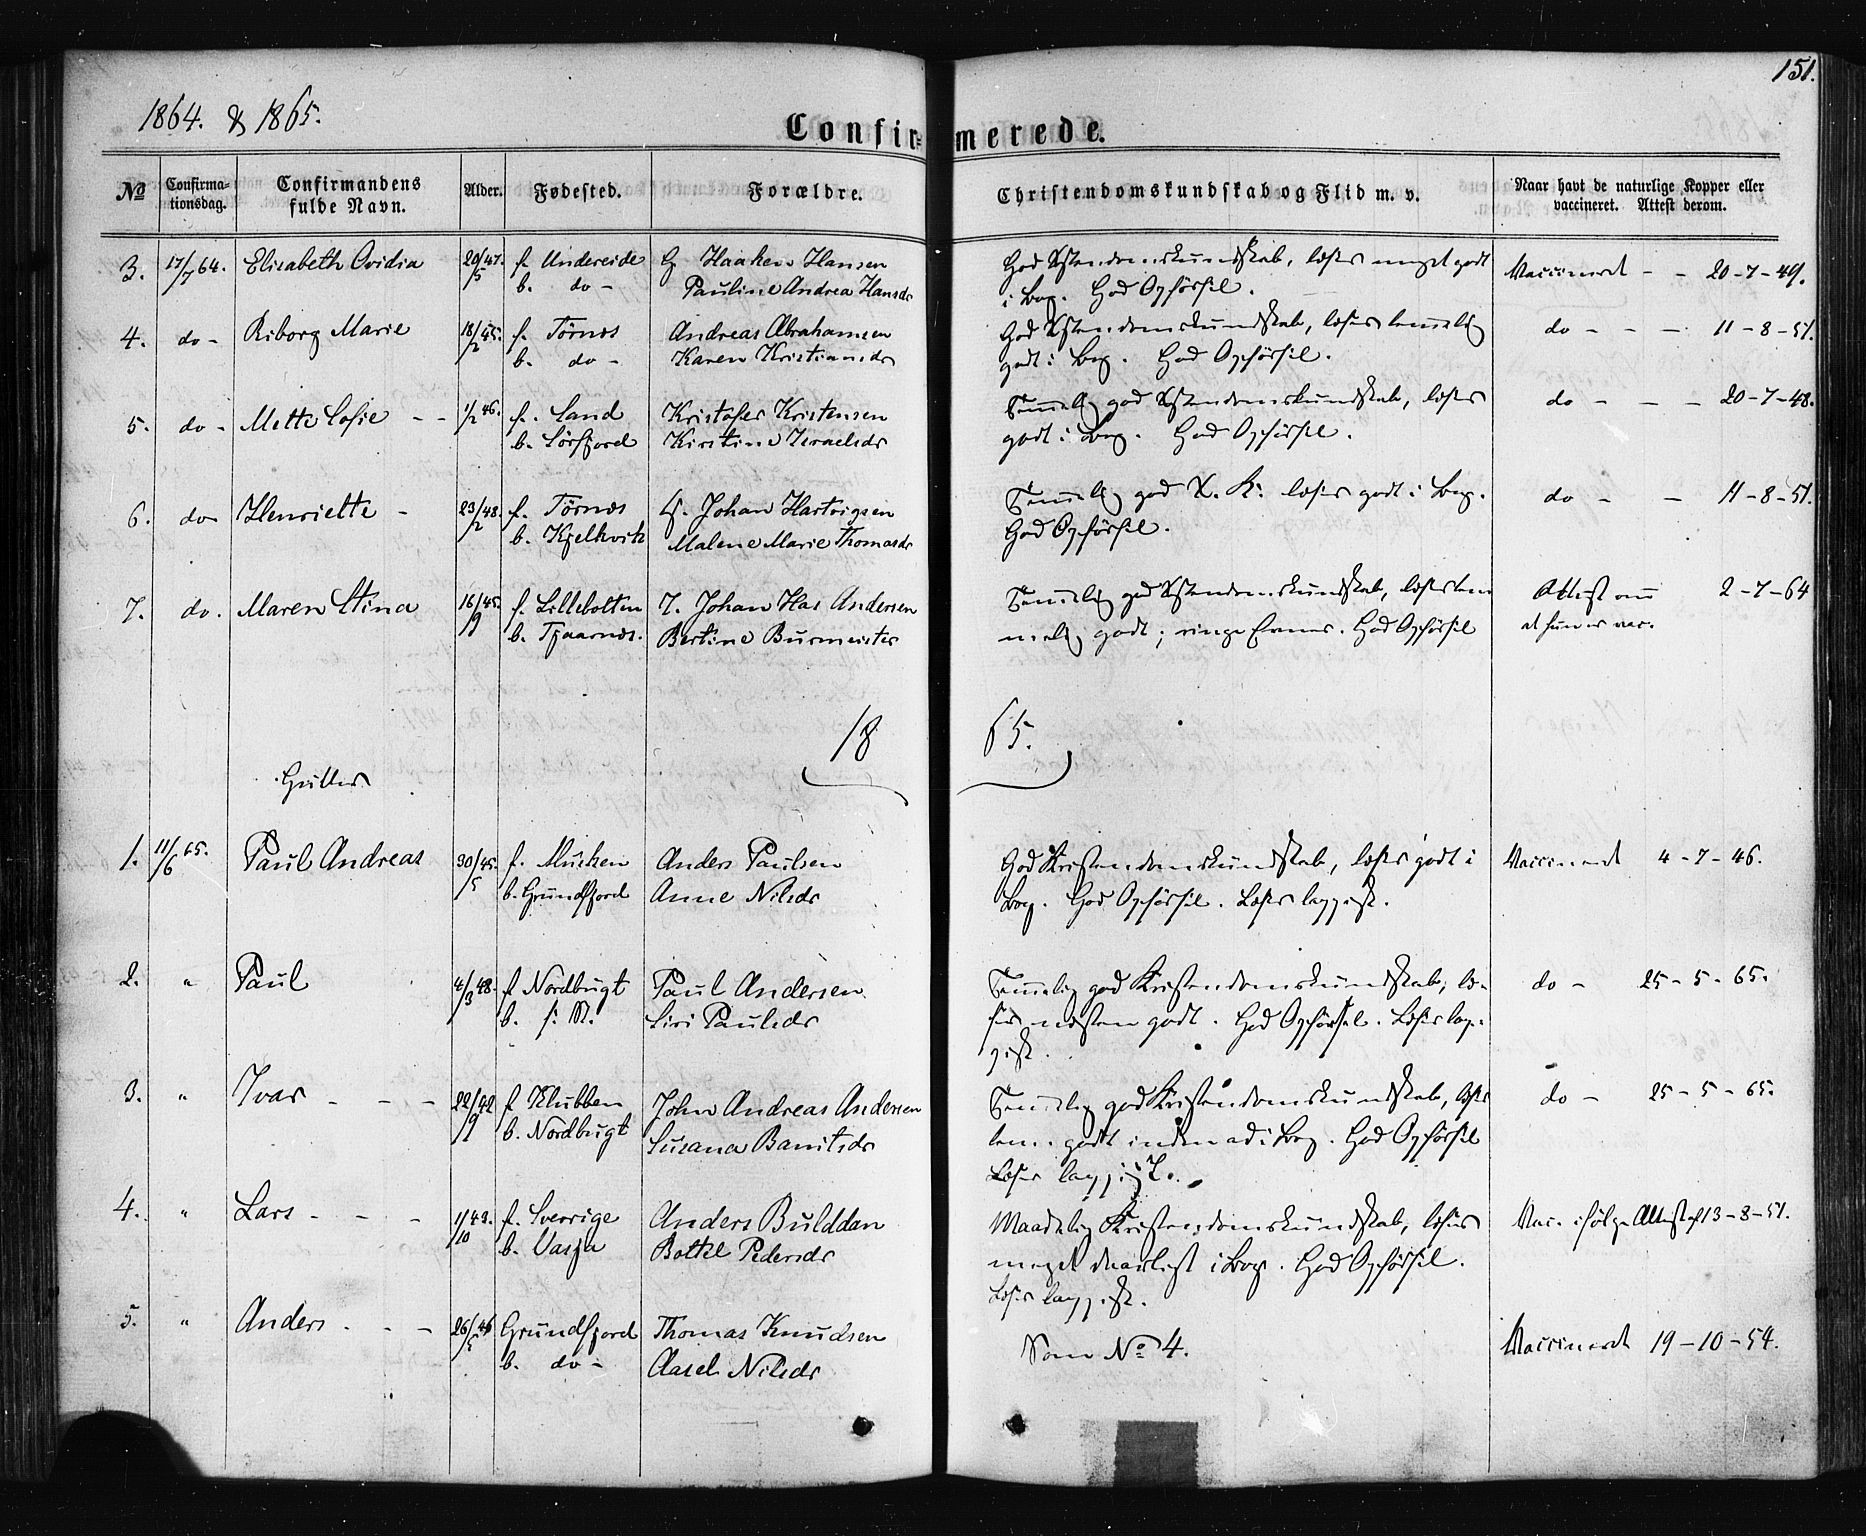 151.
1864. & 1865.
Confir- merede.
No Confirma-tionsdag. Confirmandens fulde Navn. Alder. Fødested. Forældre. Christendomskundskab og Flid m. v. Naar havt de naturlige Kopper eller vaccineret. Attest derom.
3. 17/7 64. Elisabeth Ovidia 20/5 47. f. Undereide G. Haaken Hansen God Xstendomskundskab, læser meget godt Vaccineret - - 20-7-49.
b. do - Pauline Andrea Hansdr i Bog. God Opførsel.
4. do - Riborg Marie 18/2 45. f. Törnes Andreas Abrahamsen God Xstendomskundskab, læser temelig do - - - 11-8-51.
b. do - Karen Kristiansdr godt i Bog. God Opførsel.
5. do - Mette Sofie - - 1/2 46. f. Sand Kristofer Kristensen Temelig god Xstendomskundskab, læser do - - - 20-7-48.
b. Sörfjord Kirstine Israelsdr godt i Bog. God Opførsel.
6. do - Henriette - 23/2 48. f. Törnes G. Johan Hartvigsen Temelig god X. K. læser godt i Bog. do - - 11-8-51.
b. Kjelkvik Malene Marie Thomasdr God Opførsel.
7. do. Maren Stina 16/9 45. f. Lillebolten J. Johan Has Andersen Temelig god Xstendomskundskab, læser tem Attest om 2-7-64
b. Tjaarnes. Bertine Burmeister melig godt; ringe Evner. God Opførsel at hun er vac.
18 65.
Gutter
1. 11/6 65. Paul Andreas 30/5 45. f. Musken Anders Paulsen God Kristendomskundskab, læser godt i Vaccineret 4-7-46.
b. Grundfjord Anne Nilsdr Bog. God Opførsel. Læser lappisk.
2. " Paul 4/3 48. f. Nordbugt Paul Andersen Temelig god Kristendomskundskab, læ- do - 25-5-65.
b. f. M. Siri Paulsdr ser næsten godt. God Opførsel. Læser lap-
pisk.
3. " Ivar - - - 22/9 42 f. Klubben John Andreas Andersen Temelig god Kristendomskundskab, læser do - 25-5-65.
b. Nordbugt Susana Banitsdr tem. godt indenad i Bog. God Opførsel
Læser lappisk.
4. " Lars - - - 1/10 43. f. Sverrige Anders Bulddan Maadelig Kristendomskundskab, læser Vac. ifølge Attest af 13-8-51.
b. Vasja Bottel Pedersdr meget daarligt i Bog. God Opførsel.
Læser lappisk.
5. " Anders - - - 26/5 46 Grundfjord Thomas Knudsen Som No 4. Vaccineret 19-10-54.
b. do - Aasel Nilsdr